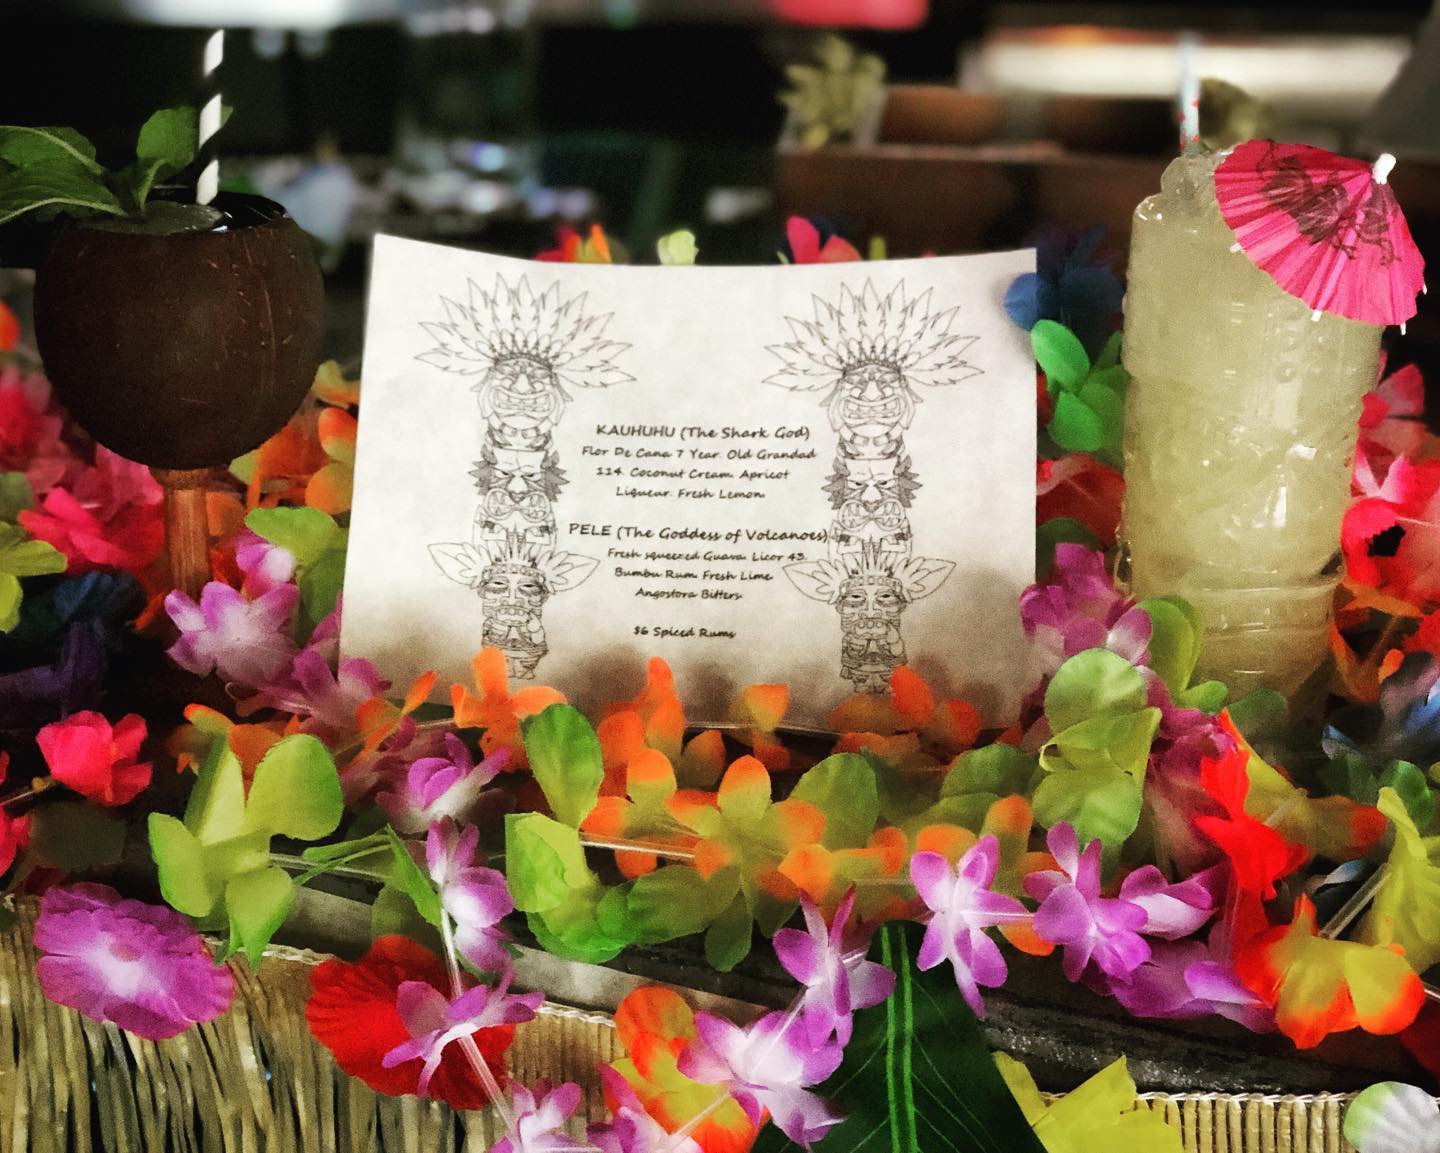 KAUHUHU (The Shark God)
Flor De Cana 7 Year. Old Grandad
114. Coconut Cream. Apricot
Liqueur. Fresh Lemon.
PELE (The Goddess of Volcanoes)
Fresh squeezed Guava. Licor 43.
Bumbu Rum. Fresh Lime.
Angostora Bitters.
$6 Spiced Rums